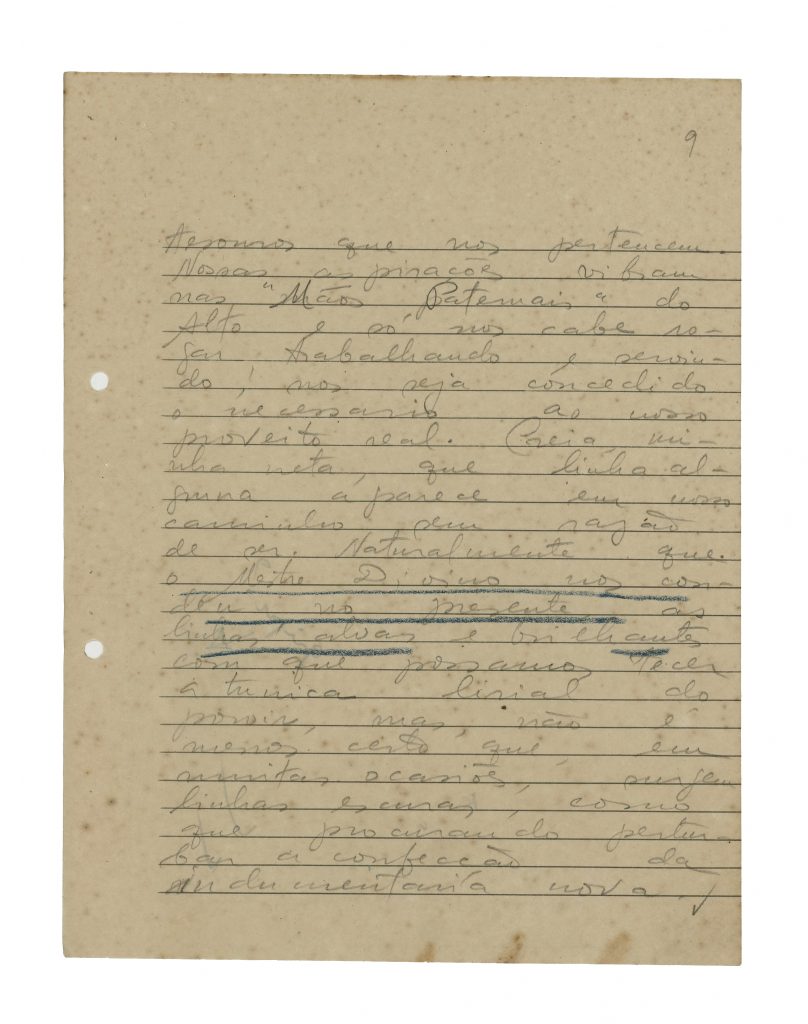 9
tesouros que nos pertencem.
Nossas aspirações vibram
nas "Mãos Paternais" do
Alto e só nos cabe ro-
gar, trabalhando e servin-
do, nos seja concedido
o necessario ao nosso
proveito real. Creia, mi-
nha neta, que linha al-
guma aparece em nosso
caminho sem razão
de ser. Naturalmente que
o Mestre Divino nos con-
deu no presente as
linhas alvas e brilhantes
com que possamos tecer
a tunica lirial do
porvir, mas, não é
menos certo que, em
muitas ocasiões, surgem
linhas escuras, como
que procurando pertur-
bar a confecção da
indumentaria nova.